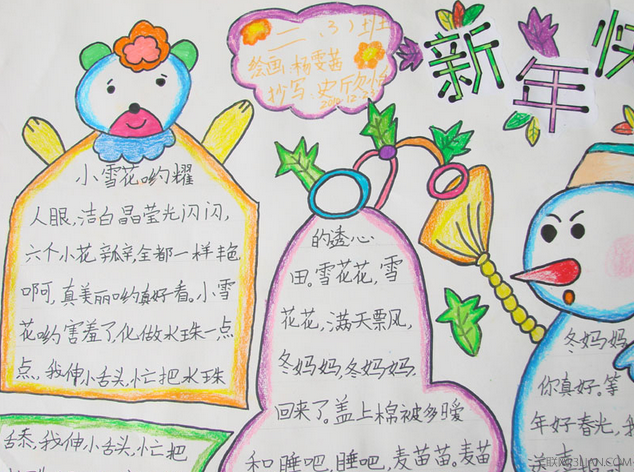 二、(3)班
绘画:杨雯茜
抄写:
新年快
小雪花哟耀
人眼,洁白晶莹光闪闪,
六个小花瓣,瓣全都一样丰艳
啊呵,真美丽哟真好看。小雪
花哟害羞了,化做水珠一点
点,我伸小舌头,忙把水珠
舌忝,我伸小舌头,忙把
的透心
田。雪花花,雪
花花,满天票风,
冬妈妈,冬妈妈
回来了。盖上棉被多暖
和睡吧,睡吧,麦苗苗,麦苗
冬妈妈
你真好。等
年好春光,我